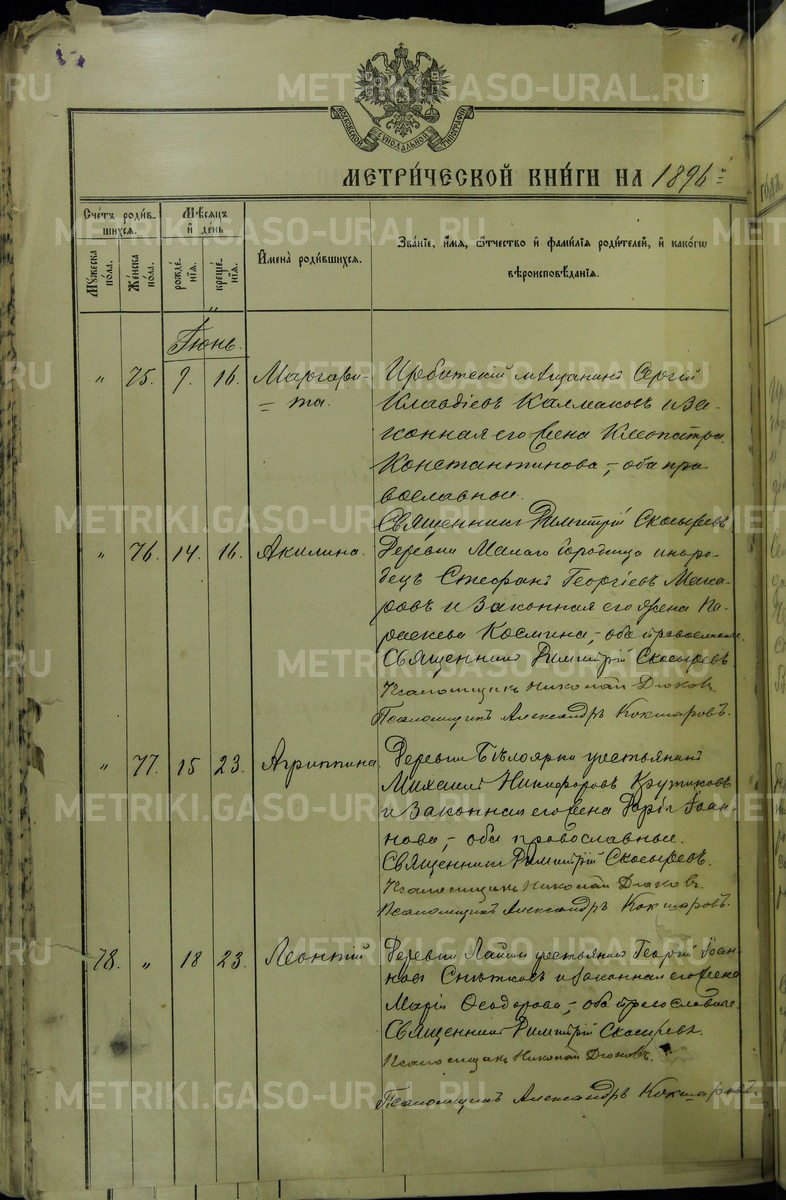 METRIKI.GASO-URAL.RU
МОСКОВСКОЙ СѴНОДАЛЬНОЙ ТИПОГРАФІИ
МЕТРИ́ЧЕСКОЙ КНИ́ГИ НА 1896
Сче́тъ роди́в-
шихся.
Мѣ́сяцъ
и҆ де́нь
Му́жеска
по́ла.
Же́нска
по́ла.
рожде́-
нїѧ.
креще́-
нїѧ.
И҆мена̀ роди́вшихся.
Зва́нїе, и҆́мѧ, ѻ҆́тчество и҆ фами́лїѧ роди́телей, и҆ како́гѡ
вѣроисповѣ́данїѧ.
Іюнь.
" 75. 9. 16. Маргари-
та.
Ирбитскій мѣщанинъ Сергій
Клавдіевъ Калмаковъ и за-
конная его жена Клеопатра
Константинова, оба пра
вославные.
Священникъ Димитрій Скосыревъ
" 76. 14. 16. Акилина.
Деревни Малаго Городища иноро-
децъ Стефанъ Георгіевъ Мака-
ровъ и законная его жена Па-
раскева Космина, оба православные.
Священникъ Димитрій Скосыревъ
Псаломщикъ Николай Дюковъ
Псаломщикъ Александръ Кокшаровъ.
" 77. 15 23. Агриппина.
Деревни Бѣлоярки крестьянинъ
Михаилъ Никифоровъ Крутиковъ
и законная его жена Дарія Іоан-
нова, оба православные.
Священникъ Димитрій Скосыревъ.
Псаломщикъ Николай Дюковъ.
Псаломщикъ Александръ Кокшаровъ.
78. " 18 23. Леонтій
Деревни крестьянинъ Георгій Іоан-
новъ и законная его жена
Марія Ѳеодорова, оба православные.
Священникъ Димитрій Скосыревъ.
Псаломщикъ Николай Дюковъ.
Псаломщикъ Александръ Кокшаровъ.